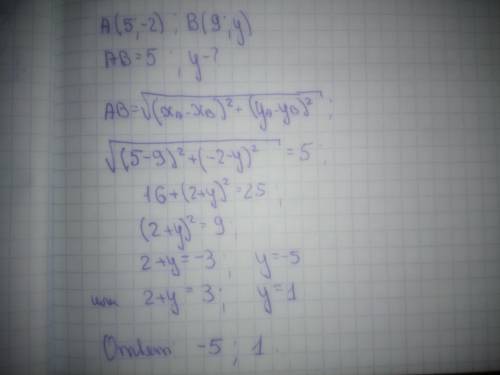 A(5;-2); B(9;y)
AB=5; y-?
AB=√(xA-xB)²+(yA-yB)²;
√(5-9)²+(-2-y)²=5;
16+(2+y)²=25;
(2+y)²=9;
2+y=-3; y=-5
или 2+y=3; y=1
Ответ: -5; 1